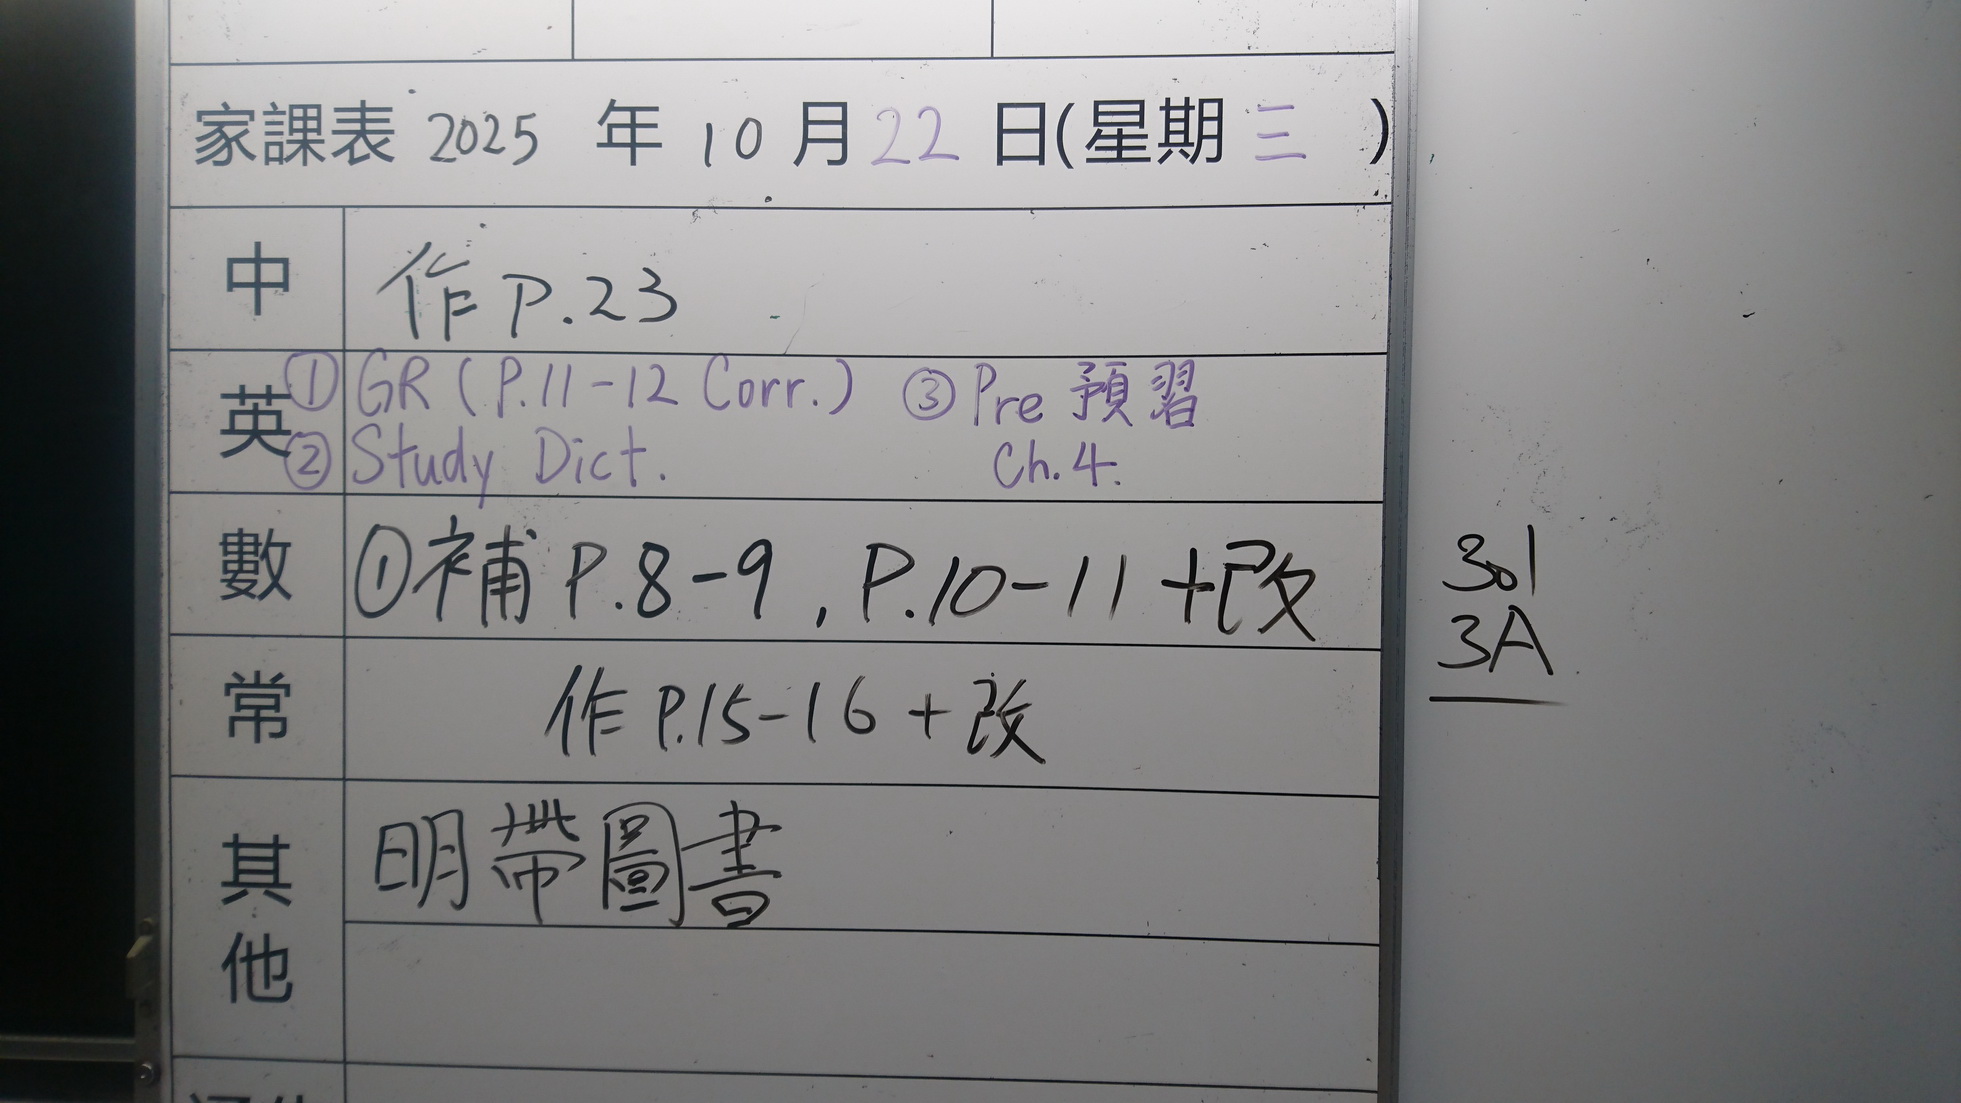 家課表 2025 年 10 月 22 日(星期 三 )
中 作 P.23
英 ① GR (P.11-12 Corr.) ③ Pre 預習
② Study Dict. Ch.4.
數 ① 補 P.8-9, P.10-11 +改
301
3A
常 作 P.15-16 + 改
其他 明帶圖書